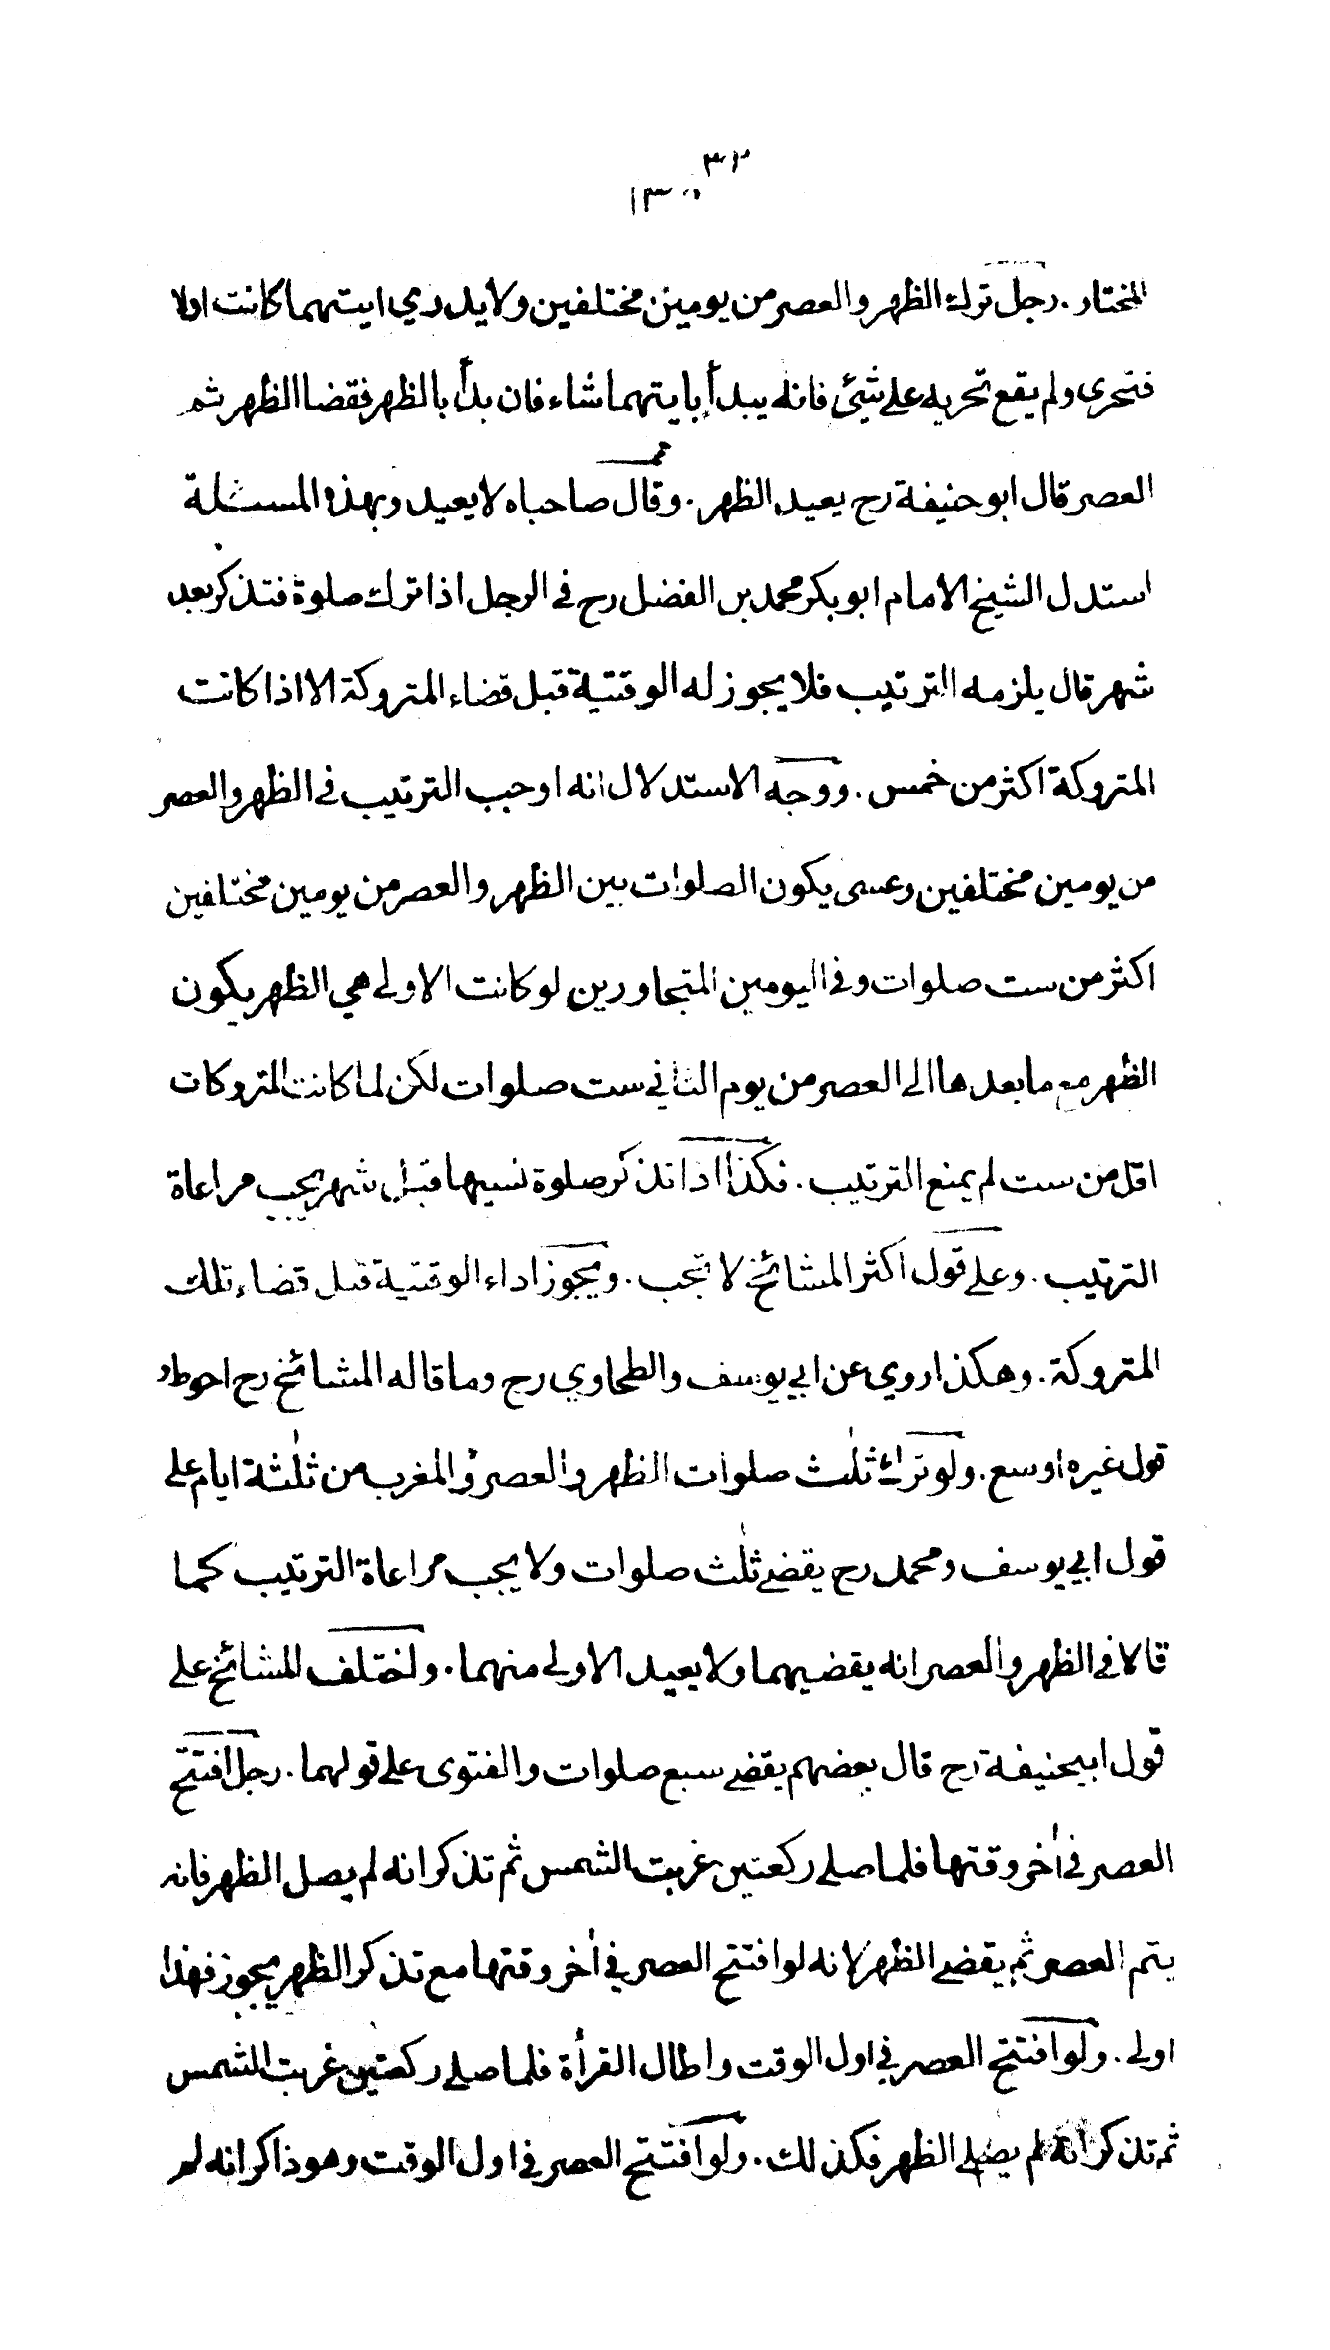 ٣٢
١٣٠
المختار . رجل ترك الظهر والعصر من يومين مختلفين ولا يدري ايتهما كانت اولا
فتحرى ولم يقع تحريه على شيئ فانه يبدأ بايتهما شاء فان بدأ بالظهر فقضا الظهر ثم
العصر قال ابو حنيفة رح يعيد الظهر . وقال صاحباه لا يعيد وبهذه المسئلة
استدل الشيخ الامام ابو بكر محمد بن الفضل رح في الرجل اذا ترك صلوة فتذكر بعد
شهر قال يلزمه الترتيب فلا يجوز له الوقتية قبل قضاء المتروكة الا اذا كانت
المتروكة اكثر من خمس . ووجه الاستدلال انه اوجب الترتيب في الظهر والعصر
من يومين مختلفين وعسى يكون الصلوات بين الظهر والعصر من يومين مختلفين
اكثر من ست صلوات وفي اليومين المتجاورين لو كانت الاولى هي الظهر يكون
الظهر مع ما بعدها الى العصر من يوم الثاني ست صلوات لكن لما كانت المتروكات
اقل من ست لم يمنع الترتيب . فكذا اذا تذكر صلوة نسيها قبل شهر يجب مراعاة
الترتيب . وعلى قول اكثر المشائخ لا تجب . ويجوز اداء الوقتية قبل قضاء تلك
المتروكة . وهكذا روي عن ابي يوسف والطحاوي رح وما قاله المشائخ رح احوط و
قول غيره اوسع . ولو ترك ثلٰث صلوات الظهر والعصر والمغرب من ثلٰثة ايام على
قول ابي يوسف ومحمد رح يقضي ثلٰث صلوات ولا يجب مراعاة الترتيب كما
قالا في الظهر والعصر انه يقضيهما ولا يعيد الاولى منهما . واختلف المشائخ على
قول ابيحنيفة رح قال بعضهم يقضي سبع صلوات والفتوى على قولهما . رجل افتتح
العصر في اٰخر وقتها فلما صلى ركعتين غربت الشمس ثم تذكر انه لم يصل الظهر فانه
يتم العصر ثم يقضي الظهر لانه لو افتتح العصر في اٰخر وقتها مع تذكر الظهر يجوز فهذا
اولى . ولو افتتح العصر في اول الوقت واطال القرأة فلما صلى ركعتين غربت الشمس
ثم تذكر انه لم يصلي الظهر فكذلك . ولو افتتح العصر في اول الوقت وهو ذاكر انه لم